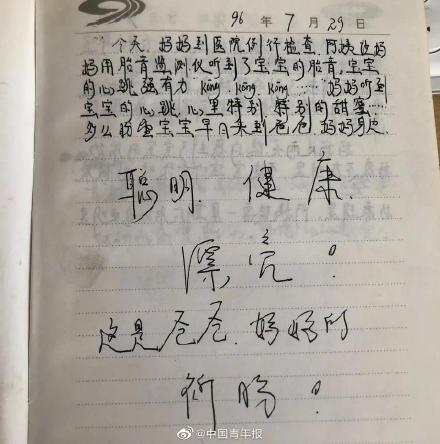 96年7月29日
今天,妈妈到医院例行检查,阿姨让妈
妈用胎音监测仪听到了宝宝的胎音,宝宝
的心跳强有力 kōng kōng kōng……妈妈听到
宝宝的心跳,心里特别,特别的甜蜜……
多么盼望宝宝早日来到爸爸,妈妈身边
聪明、健康、
漂亮!
这是爸爸、妈妈的
祈盼!
@中国青年报